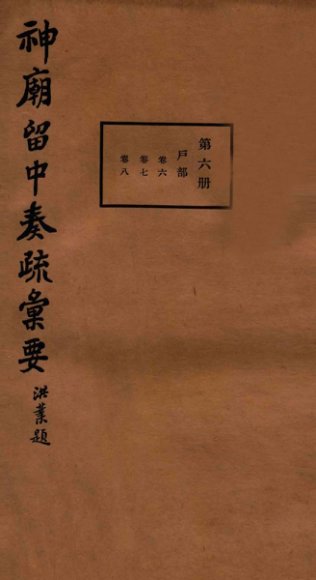 神廟留中奏疏彙要
洪業題
第六册
戶部
卷六
卷七
卷八